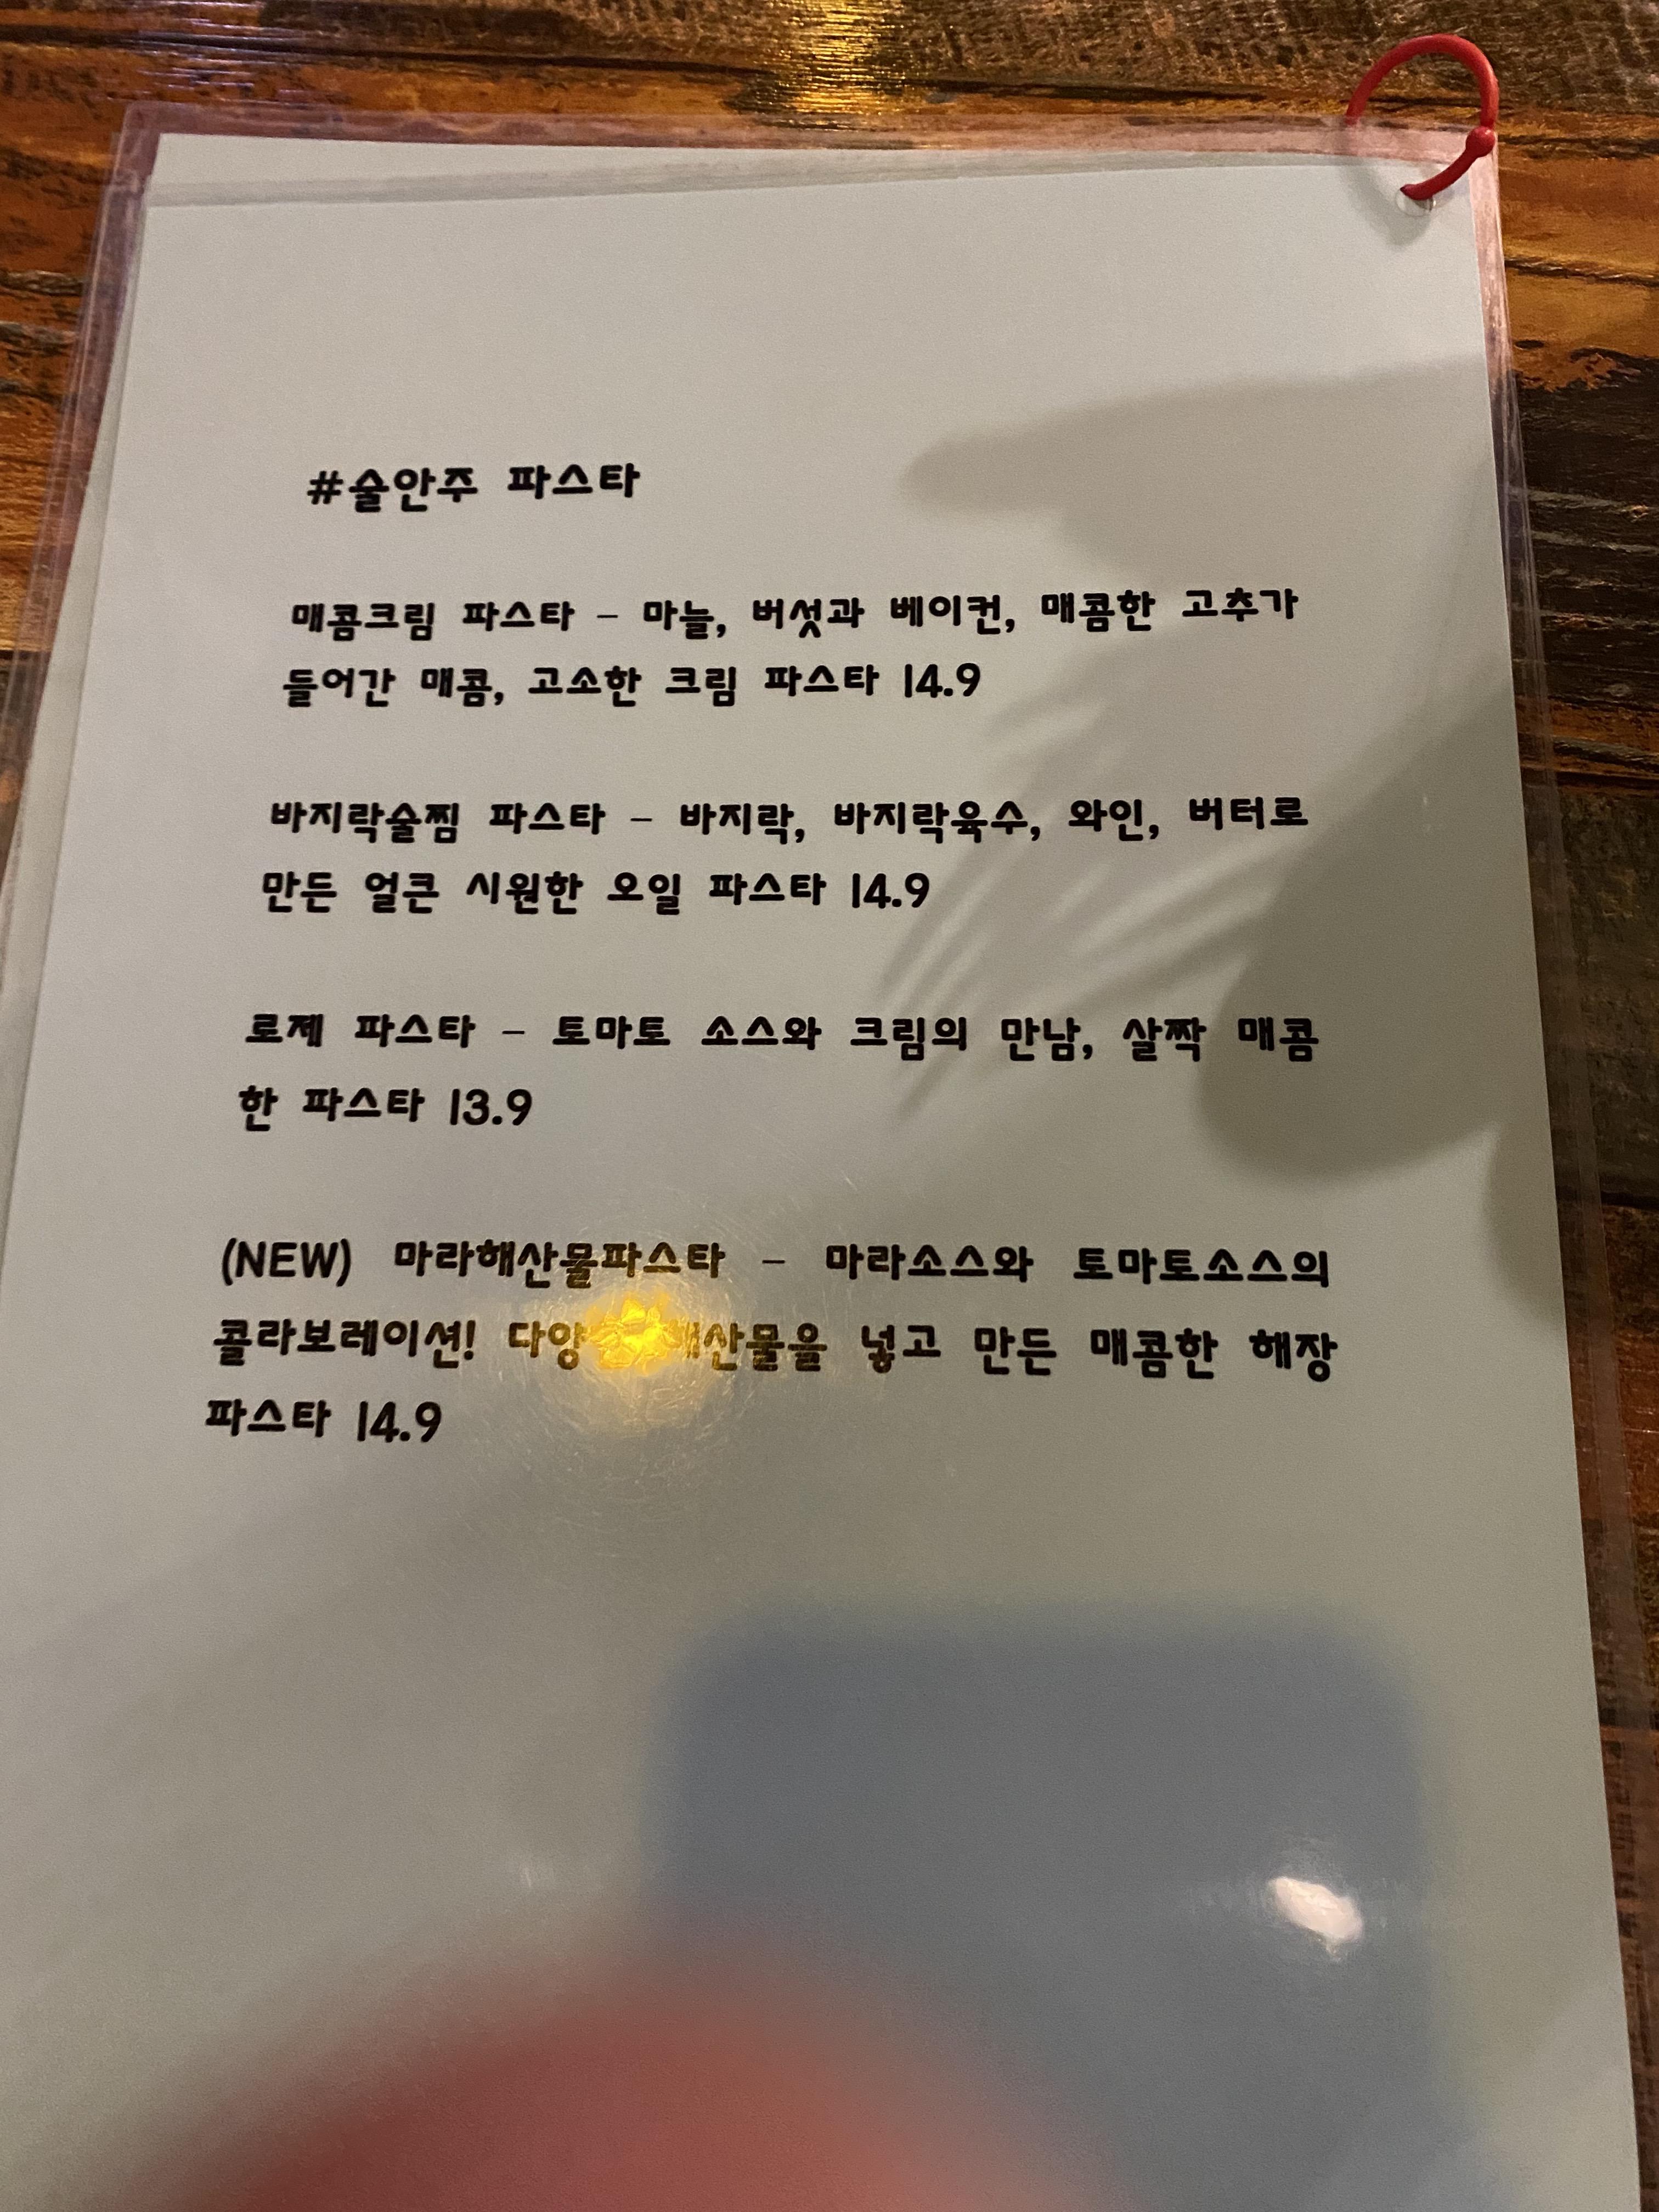 #술안주 파스타
매콤크림 파스타 – 마늘, 버섯과 베이컨, 매콤한 고추가
들어간 매콤, 고소한 크림 파스타 14.9
바지락술찜 파스타 – 바지락, 바지락육수, 와인, 버터로
만든 얼큰 시원한 오일 파스타 14.9
로제 파스타 – 토마토 소스와 크림의 만남, 살짝 매콤
한 파스타 13.9
(NEW) 마라해산물파스타 – 마라소스와 토마토소스의
콜라보레이션! 해산물을 넣고 만든 매콤한 해장
파스타 14.9